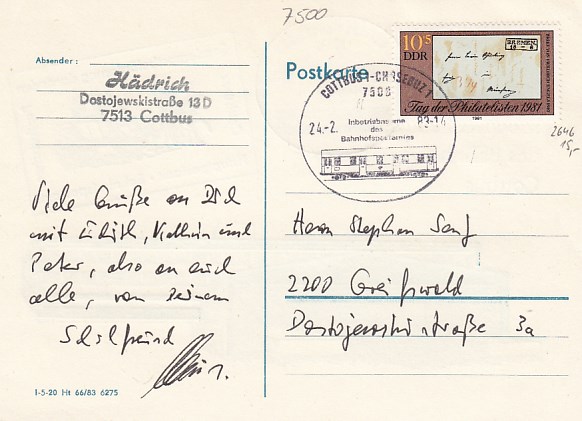 7500
Absender :
Hädrich
Dostojewskistraße 13 D
7513 Cottbus
Postkarte
10+5
DDR
BREMEN
Tag der Philatelisten 1981
1981
COTTBUS 1 - CHOŚEBUZ 1
7500
24.-2. 83-14
Inbetriebnahme
des
Bahnhofspostamtes
2646
15,-
Viele Grüße an Dich
mit und
Peter, also an euch
alle, von Deinem
Schulfreund
Herrn Stephan
2200 Greifswald
Dostojewskistraße 3a
I-5-20 Ht 66/83 6275